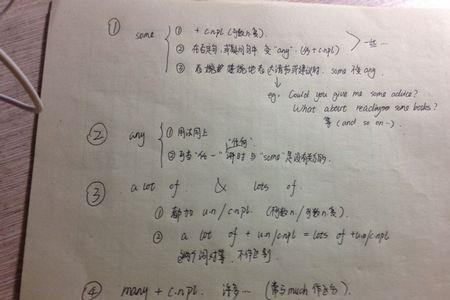 ① some ① + c.npl (可数n.复).
② 在否定句, 或疑问句中 变 "any". (何+c.npl) > 一些…
③ 表达请求或建议时, some 不变 any.
eg: Could you give me some advice?
What about reading some books?
等 (and so on…)
② any ① 用法同上
"任何"
② 可当 "任一" 讲时 与 "some" 是没有关系的.
③ a lot of & lots of
① 都加 un/c.npl (不可数n./可数n.复)
② a lot of + un/cnpl = lots of + un/cnpl
两个词对等, 不作区别.
④ many + c.npl. 许多… (常与much作区分)